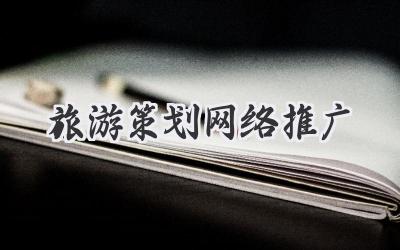 旅游策划网络推广